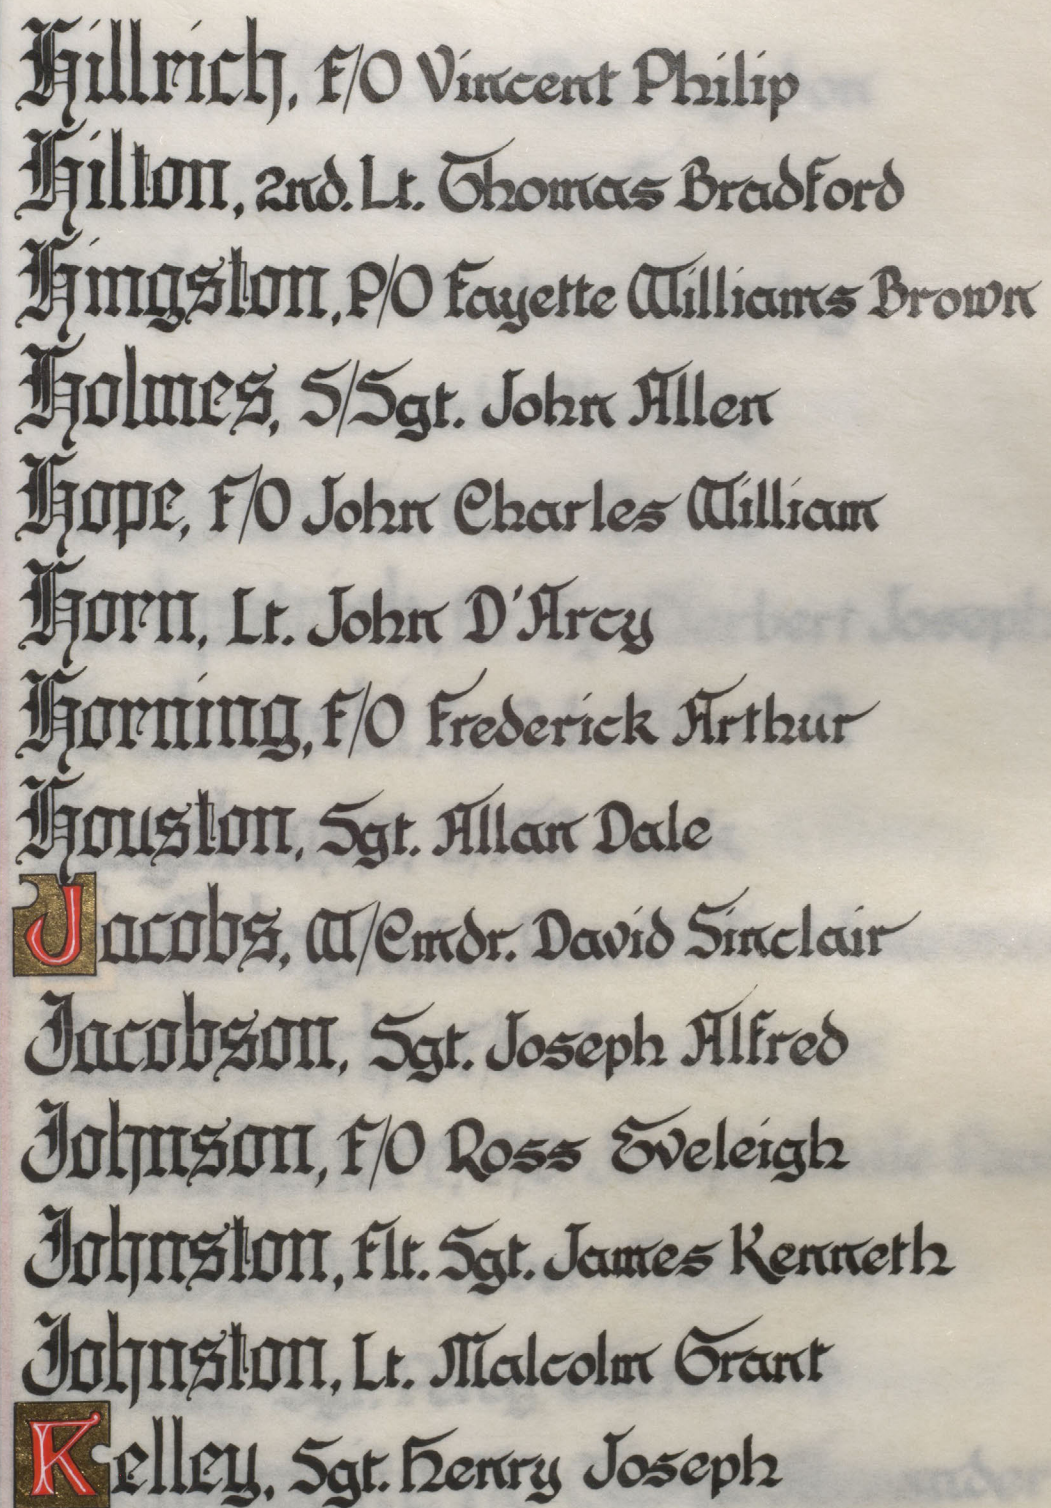 Hillrich, F/O Vincent Philip
Hilton, 2nd. Lt. Thomas Bradford
Hingston, P/O Fayette Williams Brown
Holmes, S/Sgt. John Allen
Hope, F/O John Charles William
Horn, Lt. John D'Arcy
Horning, F/O Frederick Arthur
Houston, Sgt. Allan Dale
Jacobs, W/Cmdr. David Sinclair
Jacobson, Sgt. Joseph Alfred
Johnson, F/O Ross Eveleigh
Johnston, Flt. Sgt. James Kenneth
Johnston, Lt. Malcolm Grant
Kelley, Sgt. Henry Joseph